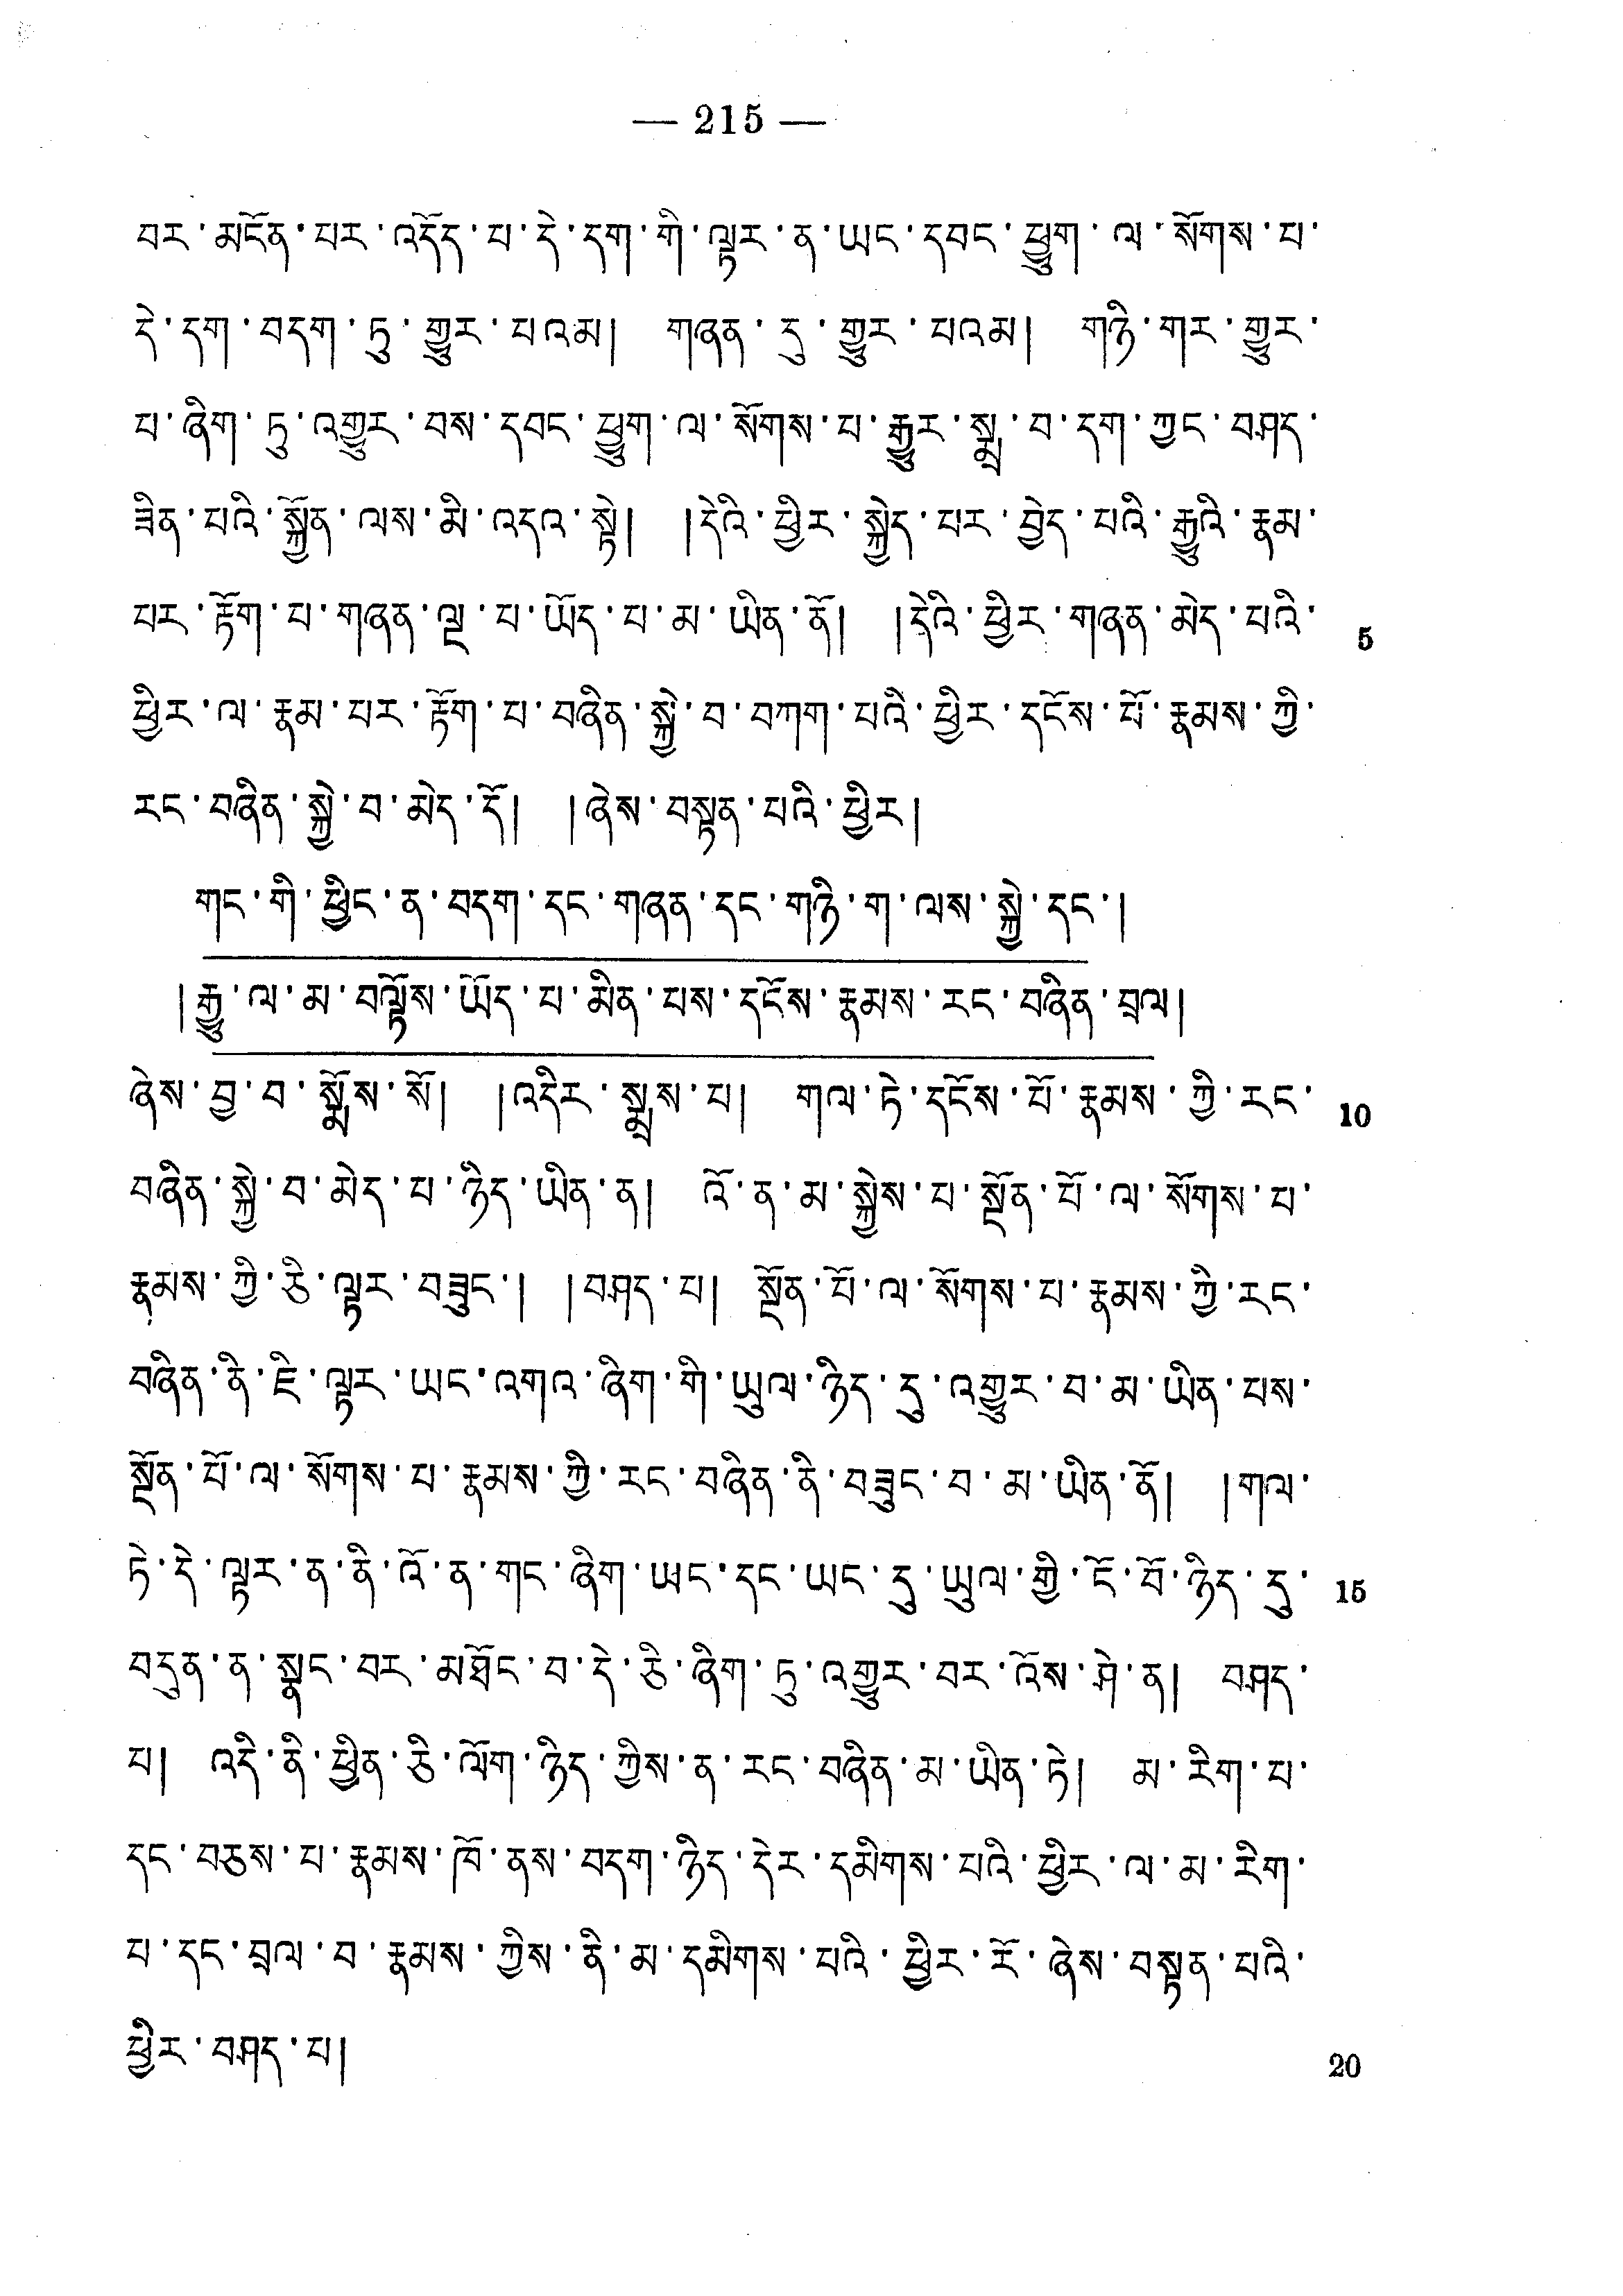 — 215 —
བར་མངོན་པར་འདོད་པ་དེ་དག་གི་ལྟར་ན་ཡང་དབང་ཕྱུག་ལ་སོགས་པ་
དེ་དག་བདག་ཏུ་གྱུར་པའམ། གཞན་དུ་གྱུར་པའམ། གཉི་གར་གྱུར་
པ་ཞིག་ཏུ་འགྱུར་བས་དབང་ཕྱུག་ལ་སོགས་པ་རྒྱུར་སྨྲ་བ་དག་ཀྱང་བཤད་
ཟིན་པའི་སྐྱོན་ལས་མི་འདའ་སྟེ། །དེའི་ཕྱིར་སྐྱེད་པར་བྱེད་པའི་རྒྱུའི་རྣམ་
པར་རྟོག་པ་གཞན་ལྔ་པ་ཡོད་པ་མ་ཡིན་ནོ། །དེའི་ཕྱིར་གཞན་མེད་པའི་ 5
ཕྱིར་ལ་རྣམ་པར་རྟོག་པ་བཞིན་སྐྱེ་བ་བཀག་པའི་ཕྱིར་དངོས་པོ་རྣམས་ཀྱི་
རང་བཞིན་སྐྱེ་བ་མེད་དོ། །ཞེས་བསྟན་པའི་ཕྱིར།
གང་གི་ཕྱིང་ན་བདག་དང་གཞན་དང་གཉི་ག་ལས་སྐྱེ་དང་།
།རྒྱུ་ལ་མ་བལྟོས་ཡོད་པ་མིན་པས་དངོས་རྣམས་རང་བཞིན་བྲལ།
ཞེས་བྱ་བ་སྨོས་སོ། །འདིར་སྨྲས་པ། གལ་ཏེ་དངོས་པོ་རྣམས་ཀྱི་རང་ 10
བཞིན་སྐྱེ་བ་མེད་པ་ཉིད་ཡིན་ན། འོ་ན་མ་སྐྱེས་པ་སྔོན་པོ་ལ་སོགས་པ་
རྣམས་ཀྱི་ཅི་ལྟར་བཟུང་། །བཤད་པ། སྔོན་པོ་ལ་སོགས་པ་རྣམས་ཀྱི་རང་
བཞིན་ནི་ཇི་ལྟར་ཡང་འགའ་ཞིག་གི་ཡུལ་ཉིད་དུ་འགྱུར་བ་མ་ཡིན་པས་
སྔོན་པོ་ལ་སོགས་པ་རྣམས་ཀྱི་རང་བཞིན་ནི་བཟུང་བ་མ་ཡིན་ནོ། །གལ་
ཏེ་དེ་ལྟར་ན་ནི་འོ་ན་གང་ཞིག་ཡང་དང་ཡང་དུ་ཡུལ་གྱི་ངོ་བོ་ཉིད་དུ་ 15
བདུན་ན་སྣང་བར་མཐོང་བ་དེ་ཅི་ཞིག་ཏུ་འགྱུར་བར་འོས་ཤེ་ན། བཤད་
པ། འདི་ནི་ཕྱིན་ཅི་ལོག་ཉིད་ཀྱིས་ན་རང་བཞིན་མ་ཡིན་ཏེ། མ་རིག་པ་
དང་བཅས་པ་རྣམས་ཁོ་ནས་བདག་ཉིད་དེར་དམིགས་པའི་ཕྱིར་ལ་མ་རིག་
པ་དང་བྲལ་བ་རྣམས་ཀྱིས་ནི་མ་དམིགས་པའི་ཕྱིར་རོ་ཞེས་བསྟན་པའི་
ཕྱིར་བཤད་པ། 20